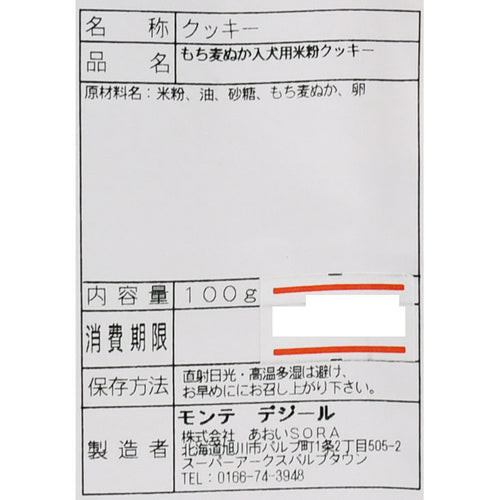 名称 クッキー
品名 もち麦ぬか入犬用米粉クッキー
原材料名：米粉、油、砂糖、もち麦ぬか、卵
内容量 100g
消費期限
保存方法 直射日光・高温多湿は避け、
お早めににお召し上がり下さい。
製造者 モンテ デジール
株式会社 あおいSORA
北海道旭川市パルプ町1条2丁目505-2
スーパーアークスパルプタウン
TEL：0166-74-3948